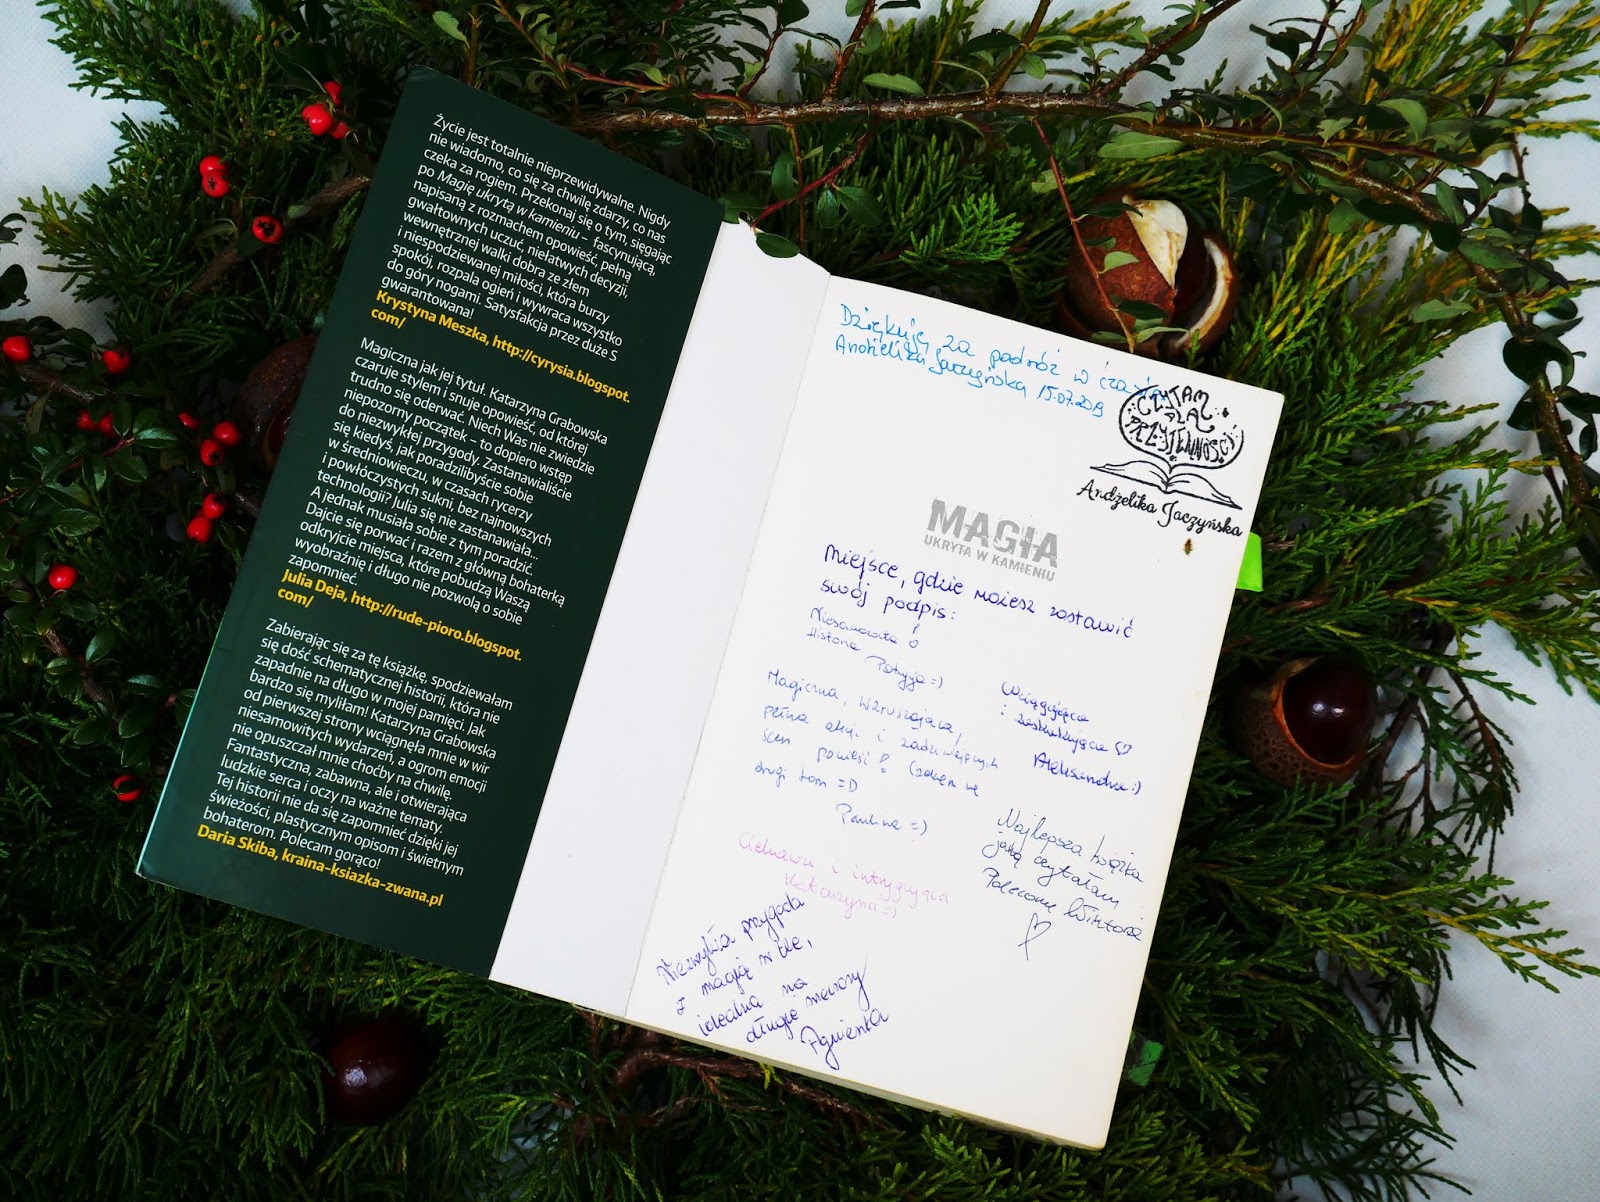 Życie jest totalnie nieprzewidywalne. Nigdy
nie wiadomo, co się za chwilę zdarzy, co nas
czeka za rogiem. Przekonaj się o tym, sięgając
po Magię ukrytą w kamieniu – fascynującą,
napisaną z rozmachem opowieść, pełną
gwałtownych uczuć, niełatwych decyzji,
wewnętrznej walki dobra ze złem
i niespodziewanej miłości, która burzy
spokój, rozpala ogień i wywraca wszystko
do góry nogami. Satysfakcja przez duże S
gwarantowana!
Krystyna Meszka, http://cyrysia.blogspot.
com/
Magiczna jak jej tytuł. Katarzyna Grabowska
czaruje stylem i snuje opowieść, od której
trudno się oderwać. Niech Was nie zwiedzie
niepozorny początek – to dopiero wstęp
do niezwykłej przygody. Zastanawialiście
się kiedyś, jak poradzilibyście sobie
w średniowieczu, w czasach rycerzy
i powłóczystych sukni, bez najnowszych
technologii? Julia się nie zastanawiała...
A jednak musiała sobie z tym poradzić.
Dajcie się porwać i razem z główną bohaterką
odkryjcie miejsca, które pobudzą Waszą
wyobraźnię i długo nie pozwolą o sobie
zapomnieć.
Julia Deja, http://rude-pioro.blogspot.
com/
Zabierając się za tę książkę, spodziewałam
się dość schematycznej historii, która nie
zapadnie na długo w mojej pamięci. Jak
bardzo się myliłam! Katarzyna Grabowska
od pierwszej strony wciągnęła mnie w wir
niesamowitych wydarzeń, a ogrom emocji
nie opuszczał mnie choćby na chwilę.
Fantastyczna, zabawna, ale i otwierająca
ludzkie serca i oczy na ważne tematy.
Tej historii nie da się zapomnieć dzięki jej
świeżości, plastycznym opisom i świetnym
bohaterom. Polecam gorąco!
Daria Skiba, kraina-ksiazka-zwana.pl
Dziękuję za podróż w czasie
Andżelika Jaczyńska 15.07.2019
CZYTAM
DLA
PRZYJEMNOŚCI
Andżelika Jaczyńska
MAGIA
UKRYTA W KAMIENIU
Miejsce, gdzie możesz zostawić
swój podpis:
Niesamowita
Historia !
Patrycja =)
Wciągająca
i zaskakująca
Aleksandra :)
Magiczna, wzruszająca,
pełna akcji i zadziwiających
scen powieść! Czekam na
drugi tom =D
Paulina =)
Najlepsza książka
jaką czytałam
Polecam Wiktoria
Ciekawa i intrygująca
Katarzyna =)
Niezwykła przygoda
z magią w tle,
idealna na
długie wieczory
Agnieszka